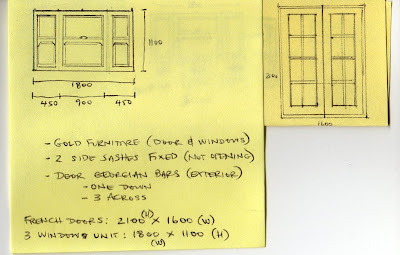 1100
1800
450 900 450
2100
1600
- GOLD FURNITURE (DOOR & WINDOWS)
- 2 SIDE SASHES FIXED (NOT OPENING)
- DOOR GEORGIAN BARS (EXTERIOR)
- ONE DOWN
- 3 ACROSS
FRENCH DOORS: 2100 (H) X 1600 (W)
3 WINDOWS UNIT: 1800 (W) X 1100 (H)